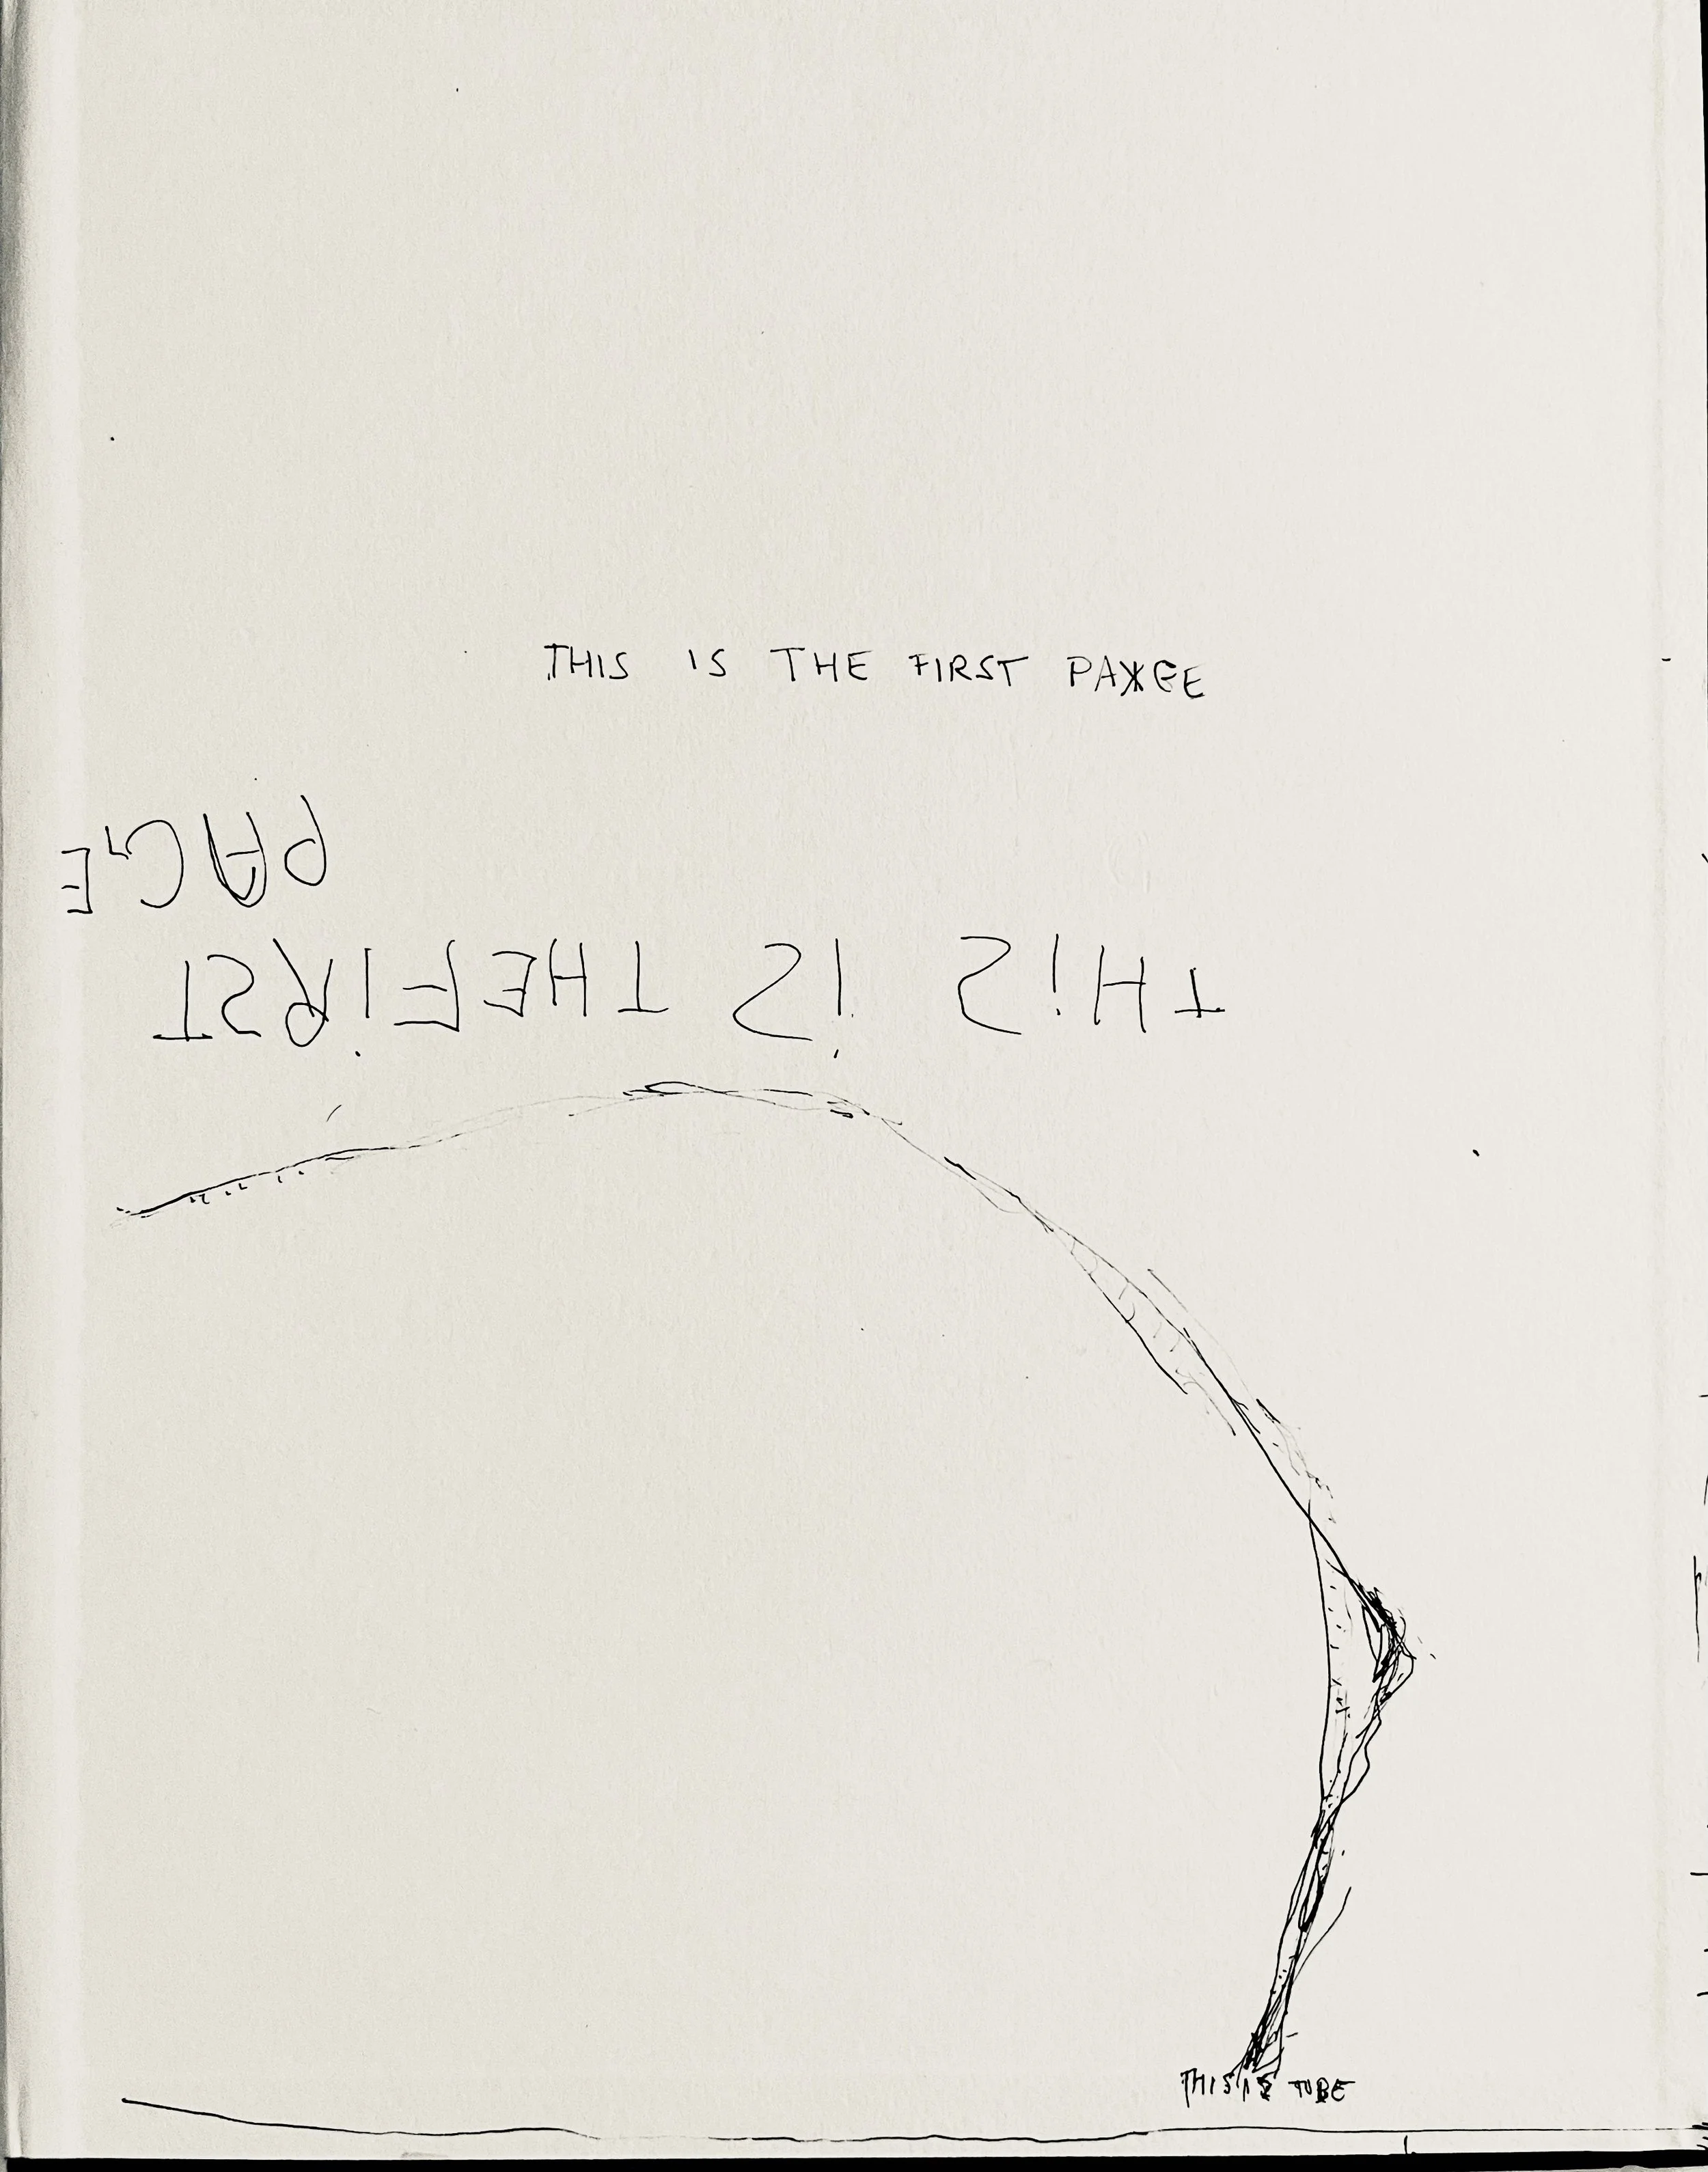 THIS IS THE FIRST PAGE
THIS IS THE FIRST
PAGE
THIS IS TUBE